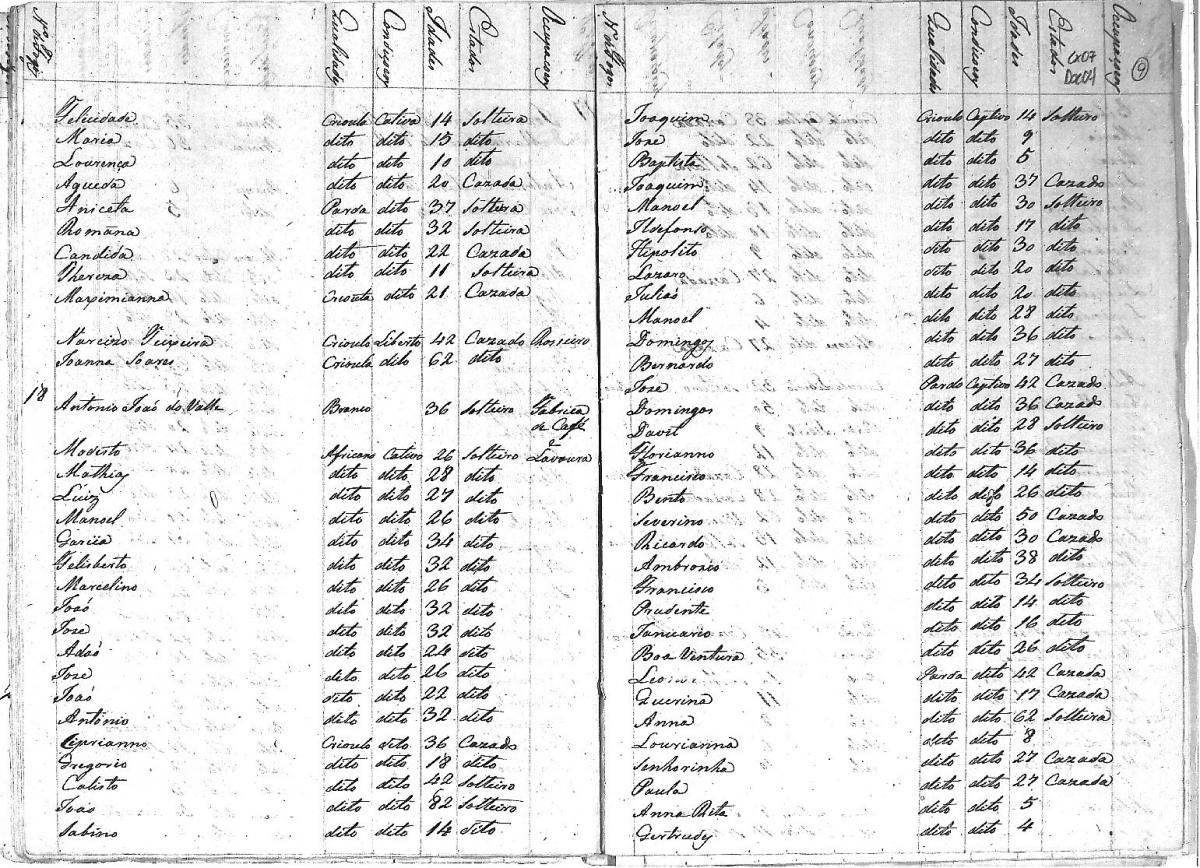 Nº de Fogos Qualidades Condições Idades Estados Occupações
Felicidade Crioula Cativa 14 Solteira
Maria dito dito 15 dito
Lourença dito dito 10 dito
Aqueda dito dito 20 Cazada
Aniceta Parda dito 37 Solteira
Romana dito dito 32 Solteira
Candida dito dito 22 Cazada
Thereza dito dito 11 Solteira
Maximianna Crioula dito 21 Cazada
Narcizo Teixeira Crioulo Liberto 42 Cazado Rosseiro
Joanna Soares Crioula dito 62 dito
18
Antonio Joaõ do Valle Branco 36 Solteiro Fabrica
de Café
e
Modesto Africano Cativo 26 Solteiro Lavoura
Mathias dito dito 28 dito
Luiz dito dito 27 dito
Manoel dito dito 26 dito
Garcia dito dito 34 dito
Felisberto dito dito 32 dito
Marcelino dito dito 26 dito
Joaõ dito dito 32 dito
Joze dito dito 32 dito
Adaõ dito dito 24 dito
Joze dito dito 26 dito
Joaõ dito dito 22 dito
Antonio dito dito 32 dito
Ciprianno Crioulo dito 36 Cazado
Gregorio dito dito 18 dito
Calisto dito dito 42 Solteiro
Joaõ dito dito 82 Solteiro
Sabino dito dito 14 dito
Nº de Fogos Qualidades Condições Idades Estados Occupações
9
Cx07
Doc04
Joaquim Crioulo Captivo 14 Solteiro
Joze dito dito 9
Baptista dito dito 5
Joaquim dito dito 37 Cazado
Manoel dito dito 30 Solteiro
Ildefonso dito dito 17 dito
Hipolito dito dito 30 dito
Lazaro dito dito 20 dito
Juliaõ dito dito 20 dito
Manoel dito dito 28 dito
Domingos dito dito 36 dito
Bernardo dito dito 27 dito
Joze Pardo Captivo 42 Cazado
Domingos dito dito 36 Cazado
David dito dito 28 Solteiro
Florianno dito dito 36 dito
Francisco dito dito 14 dito
Bento dito dito 26 dito
Severino dito dito 50 Cazado
Ricardo dito dito 30 Cazado
Ambrozio dito dito 38 dito
Francisco dito dito 34 Solteiro
Prudente dito dito 14 dito
Januario dito dito 16 dito
Boa Ventura dito dito 26 dito
Parda dito 42 Cazada
Querina dito dito 17 Cazada
Anna dito dito 62 Solteira
Lourianna dito dito 8
Senhorinha dito dito 27 Cazada
Paula dito dito 27 Cazada
Anna Rita dito dito 5
Gertrudes dito dito 4